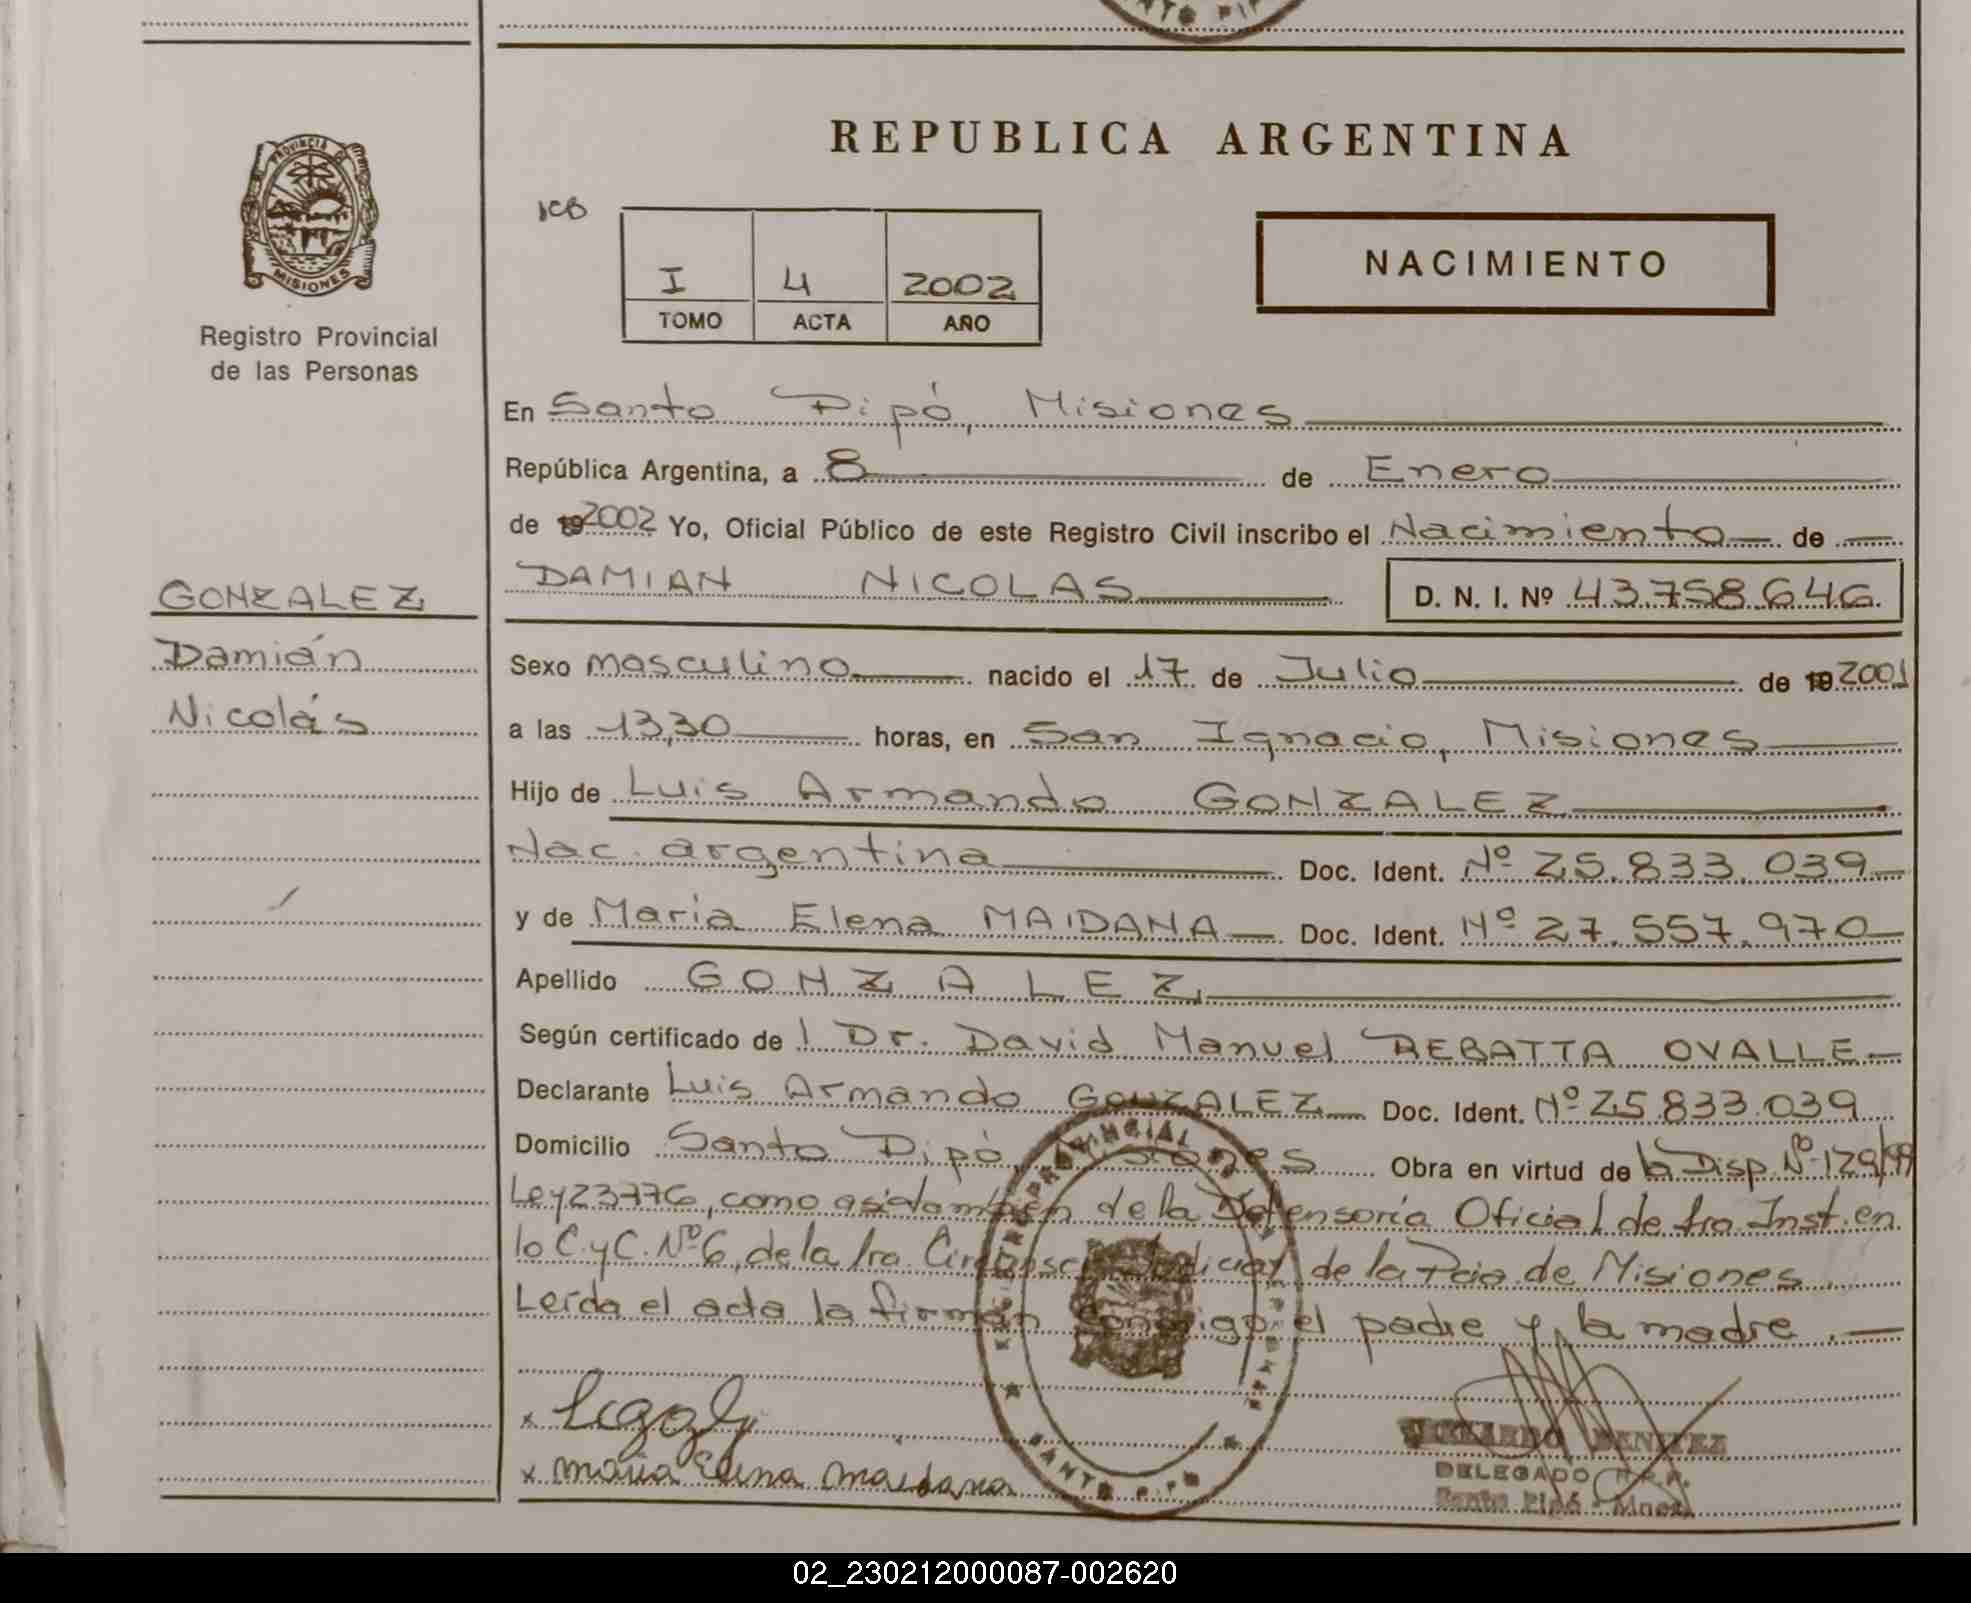 SANTO PIP
REPUBLICA ARGENTINA
PROVINCIA DE
MISIONES
Registro Provincial
de las Personas
I 4 2002
TOMO ACTA AÑO
NACIMIENTO
En Santo Pipó, Misiones
República Argentina, a 8 de Enero
de 192002 Yo, Oficial Público de este Registro Civil inscribo el Nacimiento de
GONZALEZ
Damián
Nicolás
DAMIAN NICOLAS D. N. I. Nº 43.758.646
Sexo masculino nacido el 17 de Julio de 19 2001
a las 13,30 horas, en San Ignacio, Misiones
Hijo de Luis Armando GONZALEZ
Nac. argentina Doc. Ident. Nº 25.833.039
y de María Elena MAIDANA Doc. Ident. Nº 27.557.970
Apellido GONZALEZ
Según certificado de l Dr. David Manuel REBATTA OVALLE
Declarante Luis Armando GONZALEZ Doc. Ident. Nº 25.833.039
Domicilio Santo Pipó, Misiones Obra en virtud de la Disp. Nº 129/99
Ley 23776, como así también de la Defensoría Oficial de 1ra Inst. en
lo C. y C. Nº 6, de la 1ra Circunsc. Judicial de la Pcia. de Misiones
Leída el acta la firman conmigo el padre y la madre.
x maria Elena maidana
REGISTRO PROVINCIAL DE LAS PERSONAS
SANTO PIPO
BENITEZ
DELEGADO R.P.P.
Santo Pipó - Mnes.
02_230212000087-002620